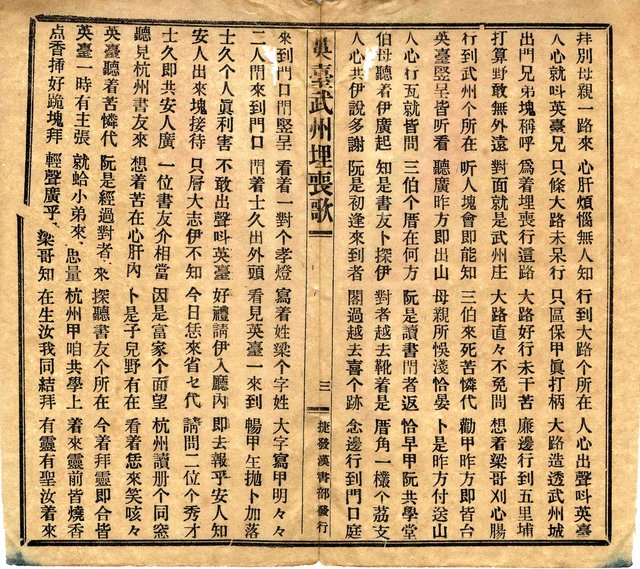 拜別母親一路來 心肝煩惱無人知 行到大路个所在 人心出聲叫英臺
人心就叫英臺兄 只條大路未呆行 只區保甲眞打柄 大路造透武州城
出門兄弟塊稱呼 爲着埋喪行這路 大路好行未干苦 廉邊行到五里埔
打算野敢無外遠 對面就是武州庄 大路直々不免問 想着梁哥刈心腸
行到武州个所在 听人塊會即能知 三伯來死苦憐代 勸甲昨方即皆台
英臺竪呈皆听看 聽廣昨方即出山 母親所悞淺恰晏 卜是昨方付送山
人心行瓦就皆問 三伯个厝在何方 阮是讀書門者返 恰早甲阮共學堂
伯母聽着伊廣起 知是書友卜探伊 對者越去靴着是 厝角一欉个荔支
人心共伊說多謝 阮是初逢來到者 閣過越去喜个跡 念邊行到門口庭
三 捷發漢書部發行
英臺武州埋喪歌
來到門口門竪呈 看着一對个孝燈 寫着姓梁个字姓 大字寫甲明々々
二人門來到門口 門着士久出外頭 看見英臺一來到 暢甲生拋卜加落
士久个人眞利害 不敢出聲叫英臺 好禮請伊入廳內 即去報乎安人知
安人出來塊接待 只層大志伊不知 今日恁來省乜代 請問二位个秀才
士久即共安人廣 一位書友介相當 因是富家个面望 杭州讀册个同窓
聽見杭州書友來 想着苦在心肝內 卜是子兒野有在 看着恁來笑咳々
英臺聽着苦憐代 阮是經過對者來 探聽書友个所在 今着拜靈即合皆
英臺一時有主張 就蛤小弟來思量 杭州甲咱共學上 着來靈前皆燒香
点香揷好跪塊拜 輕聲廣乎梁哥知 在生汝我同結拜 有靈有聖汝着來